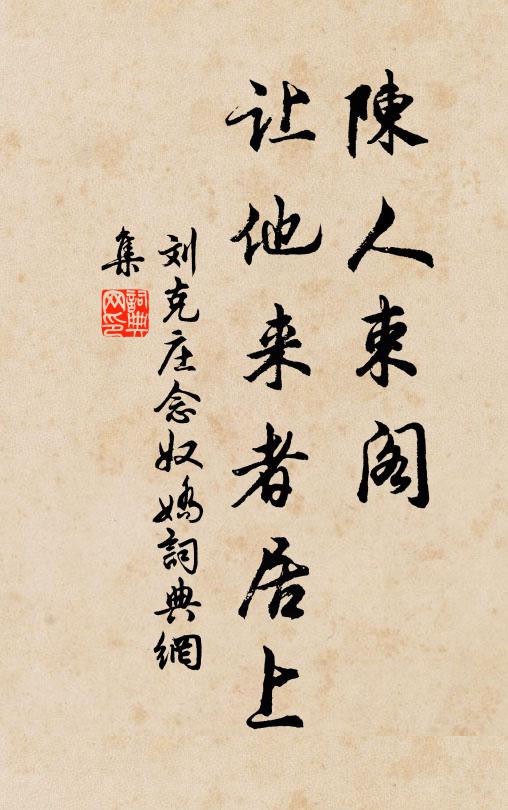 陳人束阁
让他来者居上
刘克庄念奴嬌詞典網
集
詞典网印